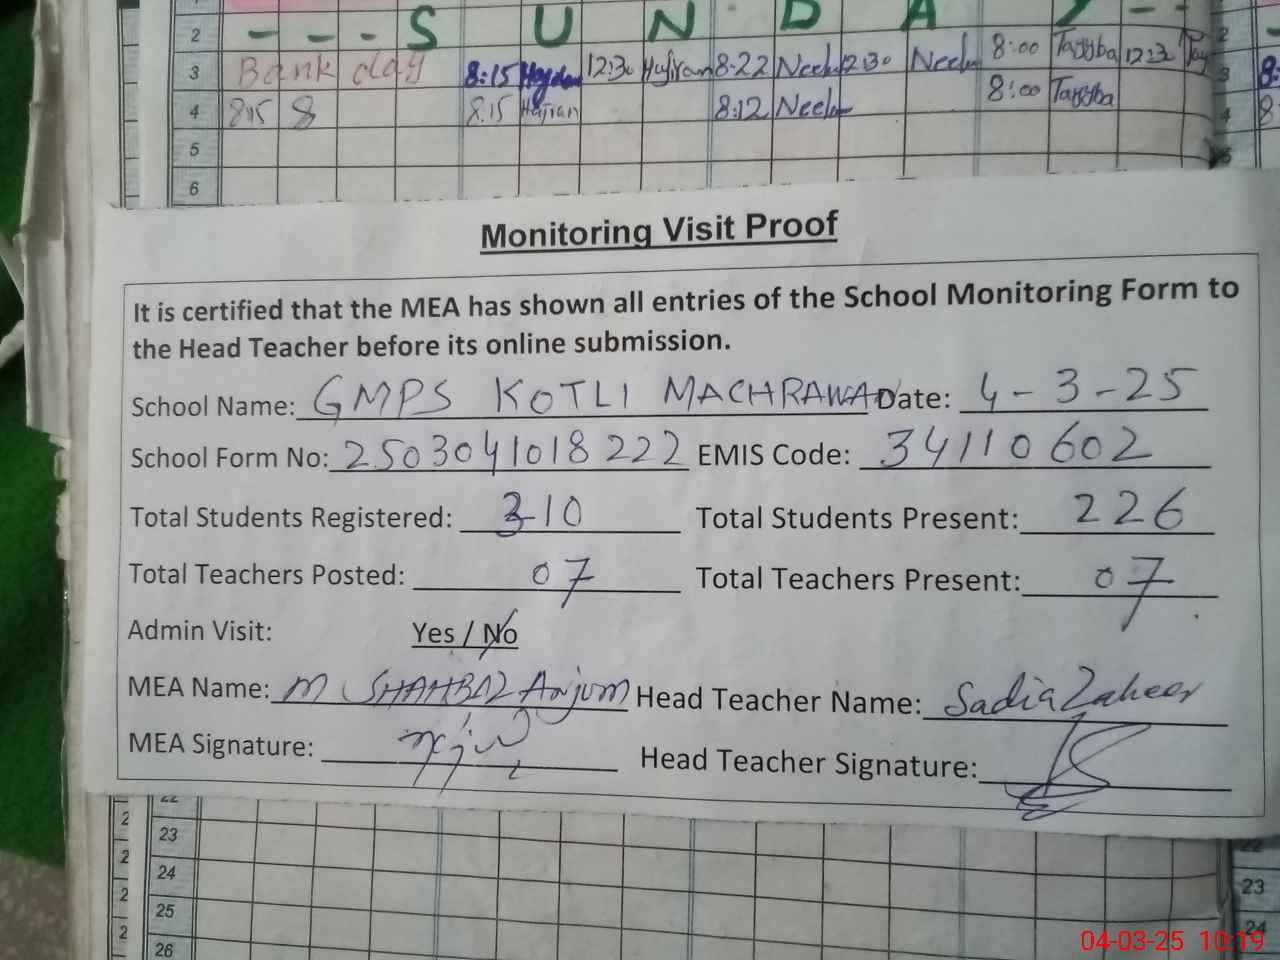 2 - - - S U N D A Y - - 2
3 Bank day 8:15 12:30 Hajran 8:22 Neel 12:30 Neel 8:00 Tayyba 12:30 Tay 3
4 8:15 8:15 Hajran 8:12 Neel 8:00 Tayyba 4
5 5
6
Monitoring Visit Proof
It is certified that the MEA has shown all entries of the School Monitoring Form to
the Head Teacher before its online submission.
School Name: GMPS KOTLI MACHRAWAN Date: 4-3-25
School Form No: 2503041018222 EMIS Code: 34110602
Total Students Registered: 310 Total Students Present: 226
Total Teachers Posted: 07 Total Teachers Present: 07
Admin Visit: Yes / No
MEA Name: M SHAHBAZ Anjum Head Teacher Name: Sadia Zaheer
MEA Signature: Head Teacher Signature:
22 22
23 23
24 24
25
26
04-03-25 10:19